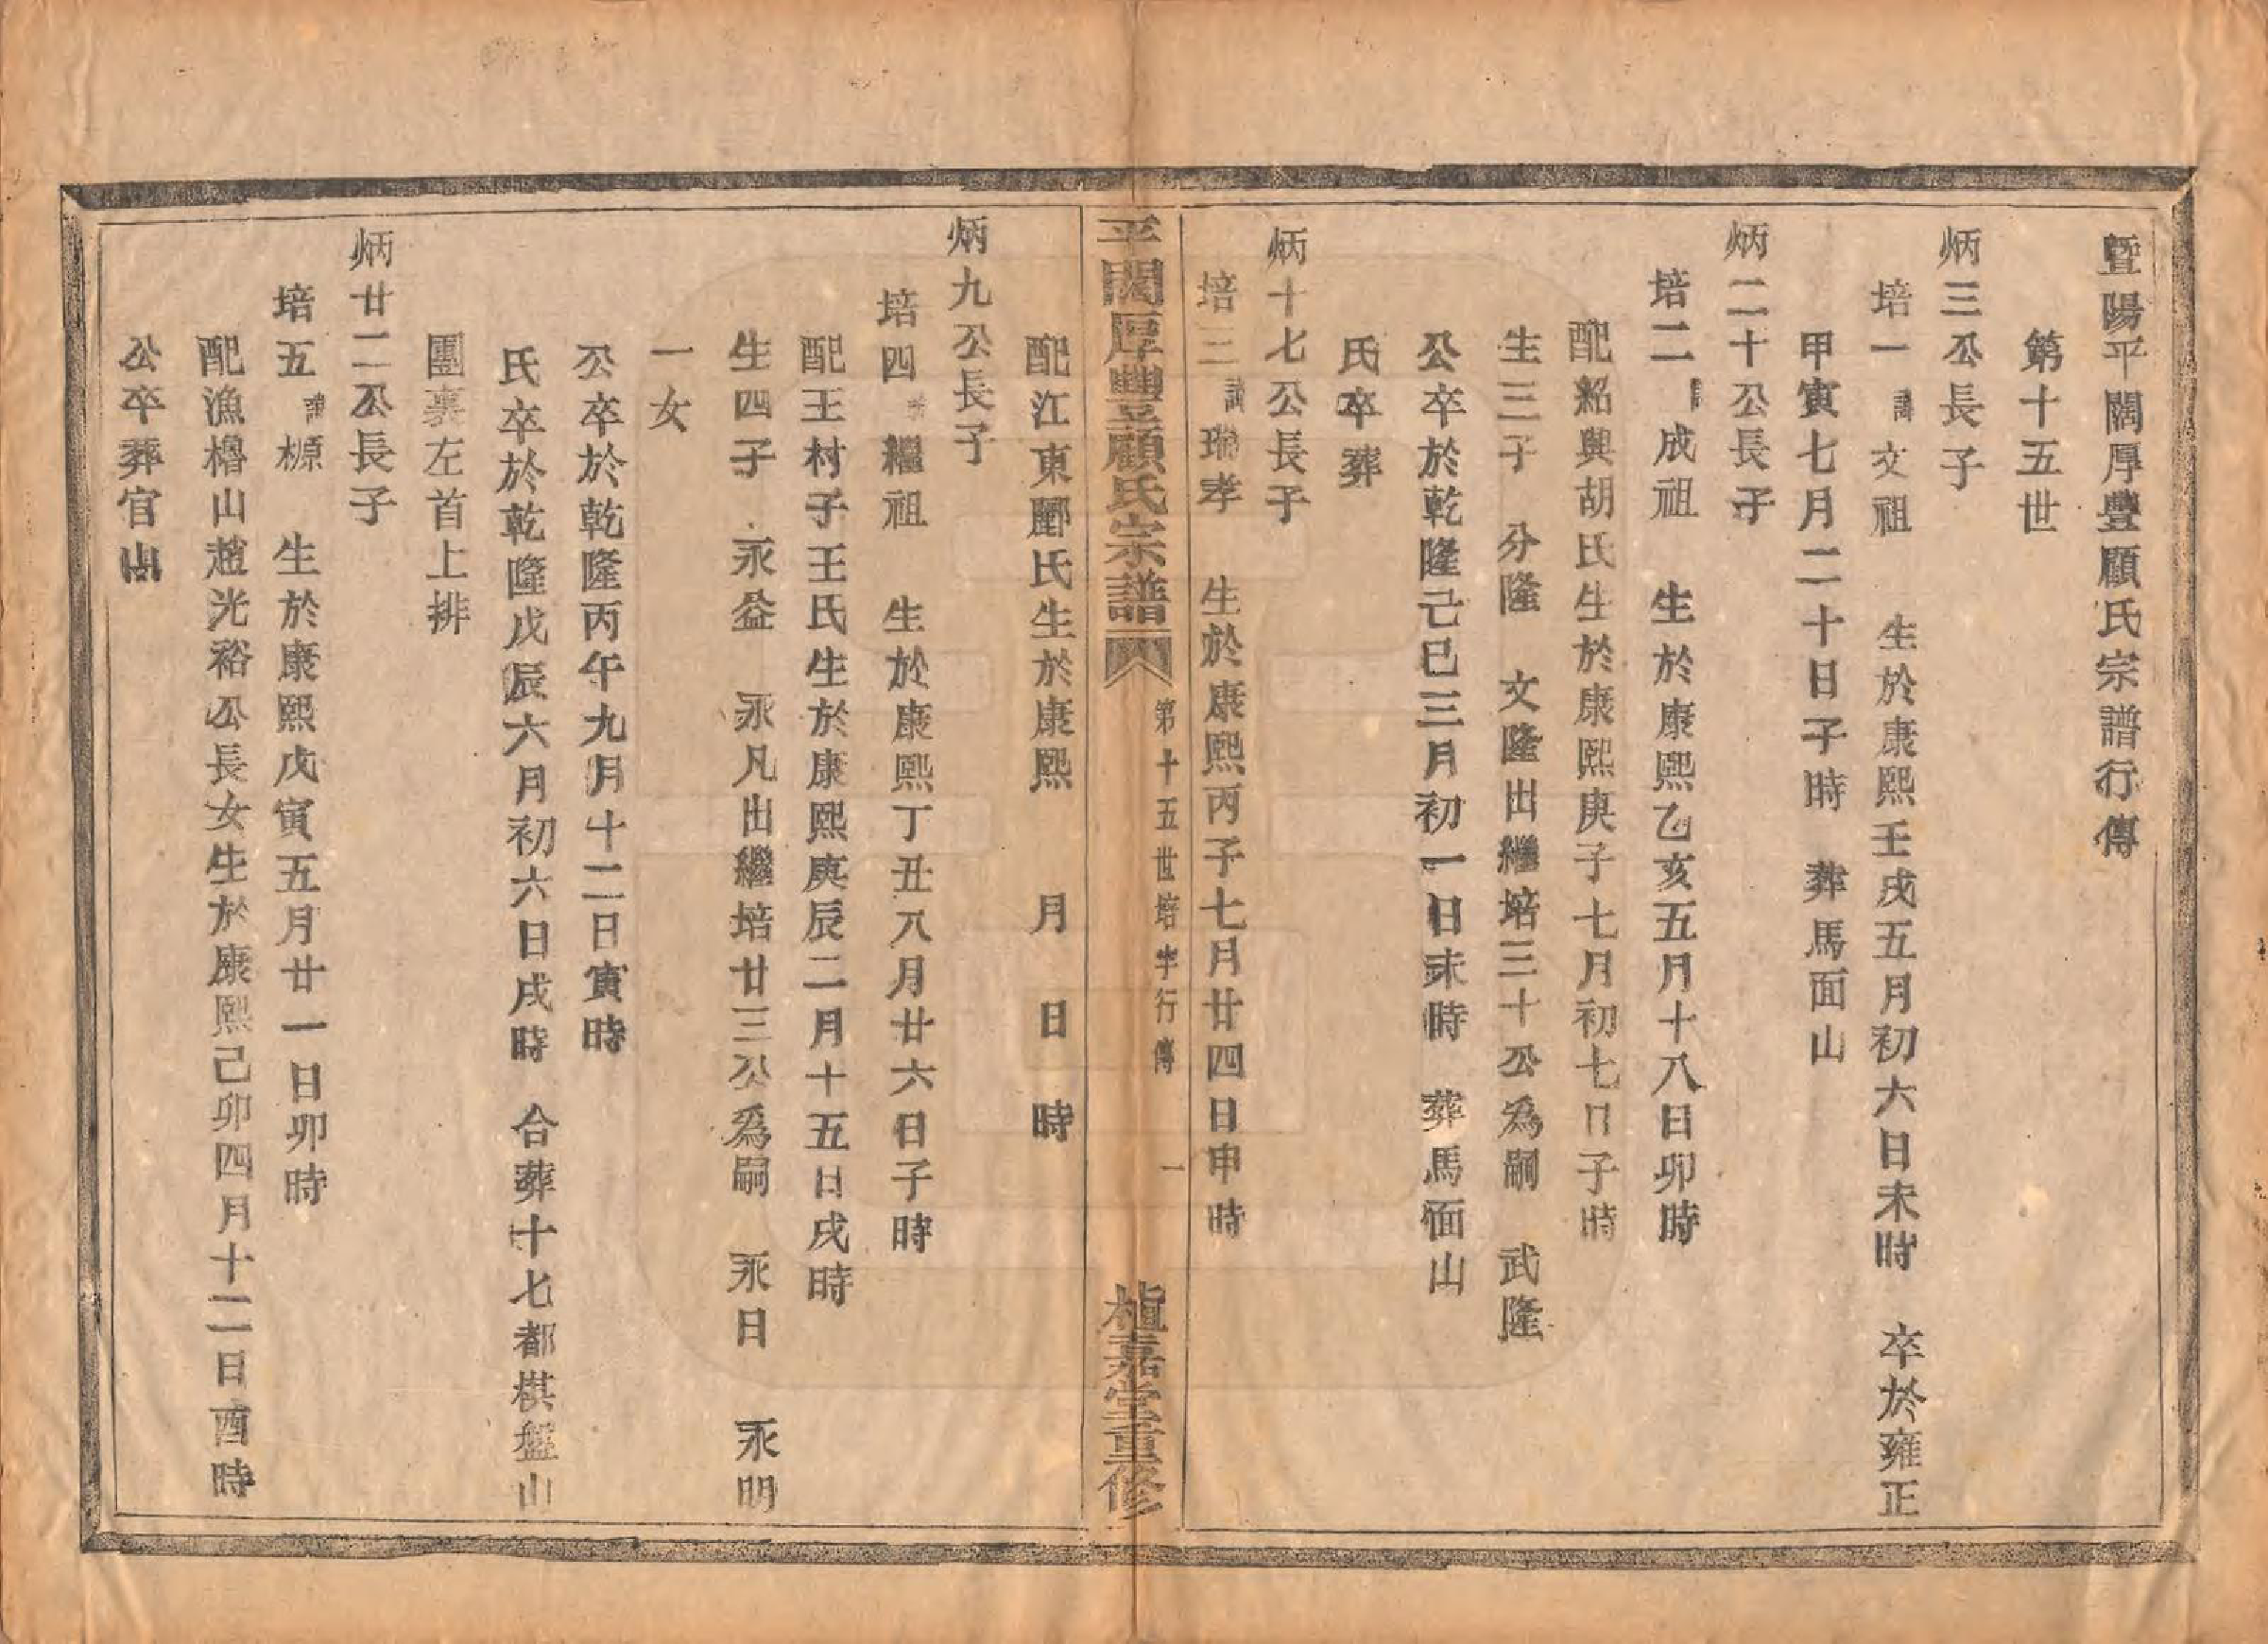 暨陽平闊厚豐顧氏宗譜行傳
第十五世
炳三公長子
培一 諱 文祖 生於康熙壬戌五月初六日未時 卒於雍正
甲寅七月二十日子時 葬馬面山
炳二十公長子
培二 諱 成祖 生於康熙乙亥五月十八日卯時
配紹興胡氏生於康熙庚子七月初七日子時
生三子 分隆 文隆出繼培三十公為嗣 武隆
公卒於乾隆己巳三月初一日未時 葬馬面山
氏卒葬
炳十七公長子
培三 諱 孝 生於康熙丙子七月廿四日申時
平闊厚豐顧氏宗譜 第十五世培字行傳 一 嘉堂重修
配江東酈氏生於康熙 月 日 時
炳九公長子
培四 諱 繼祖 生於康熙丁丑八月廿六日子時
配王村子王氏生於康熙庚辰二月十五日戌時
生四子 永益 永凡出繼培廿三公為嗣 永日 永明
一女
公卒於乾隆丙午九月十二日寅時
氏卒於乾隆戊辰六月初六日戌時 合葬十七都棋盤山
團裏左首上排
炳廿二公長子
培五 諱 榞 生於康熙戊寅五月廿一日卯時
配漁櫓山趙光裕公長女生於康熙己卯四月十二日酉時
公卒葬官山